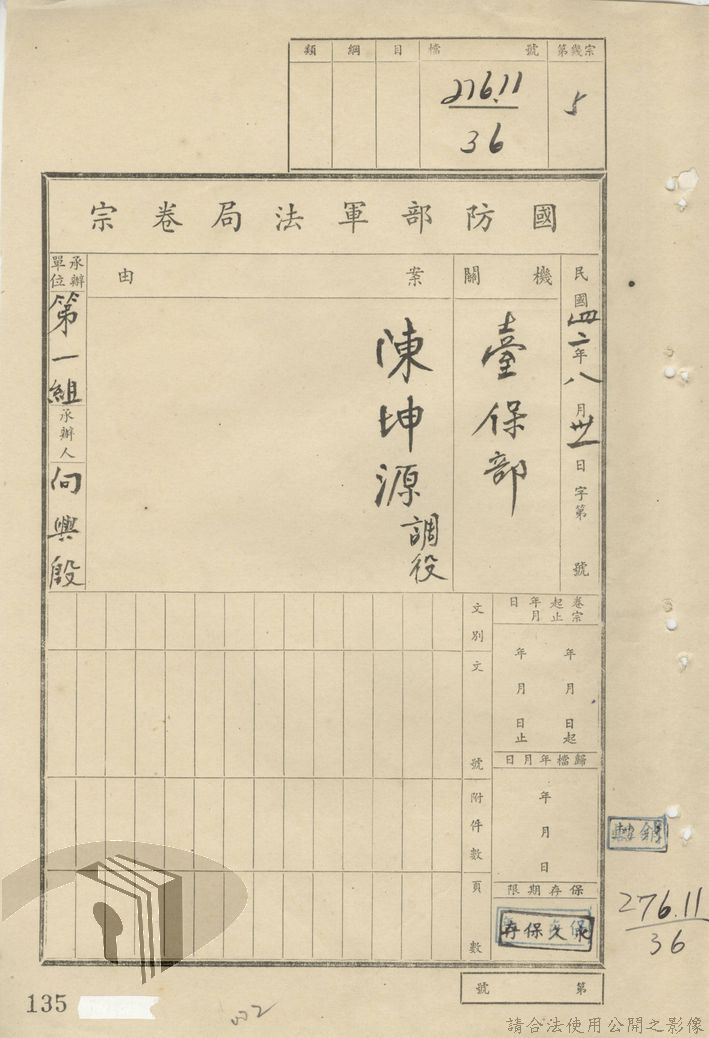 類 綱 目 檔號 第幾宗
276.11
36
5
國防部軍法局卷宗
民國四二年八月卅一日 字第 號
機關
臺保部
案由
陳坤源調役
承辦單位
第一組
承辦人
向興殷
卷宗起止年月日
年 月 日起
年 月 日止
歸檔年月日
年 月 日
保存期限
永久保存
文別
文號
附件數
頁數
第 號
276.11
36
135
002
請合法使用公開之影像